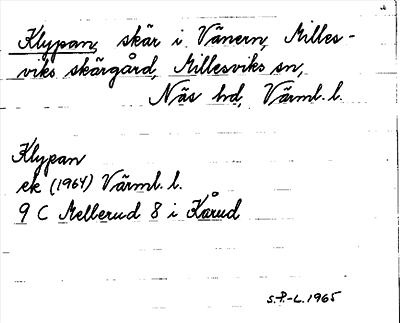 Klypan, skär i Vänern, Milles-
viks skärgård, Millesviks sn,
Näs hd, Värml. l.
Klypan
ek (1964) Värml. l.
9 C Mellerud 8 i Kårud
S.P.-L. 1965